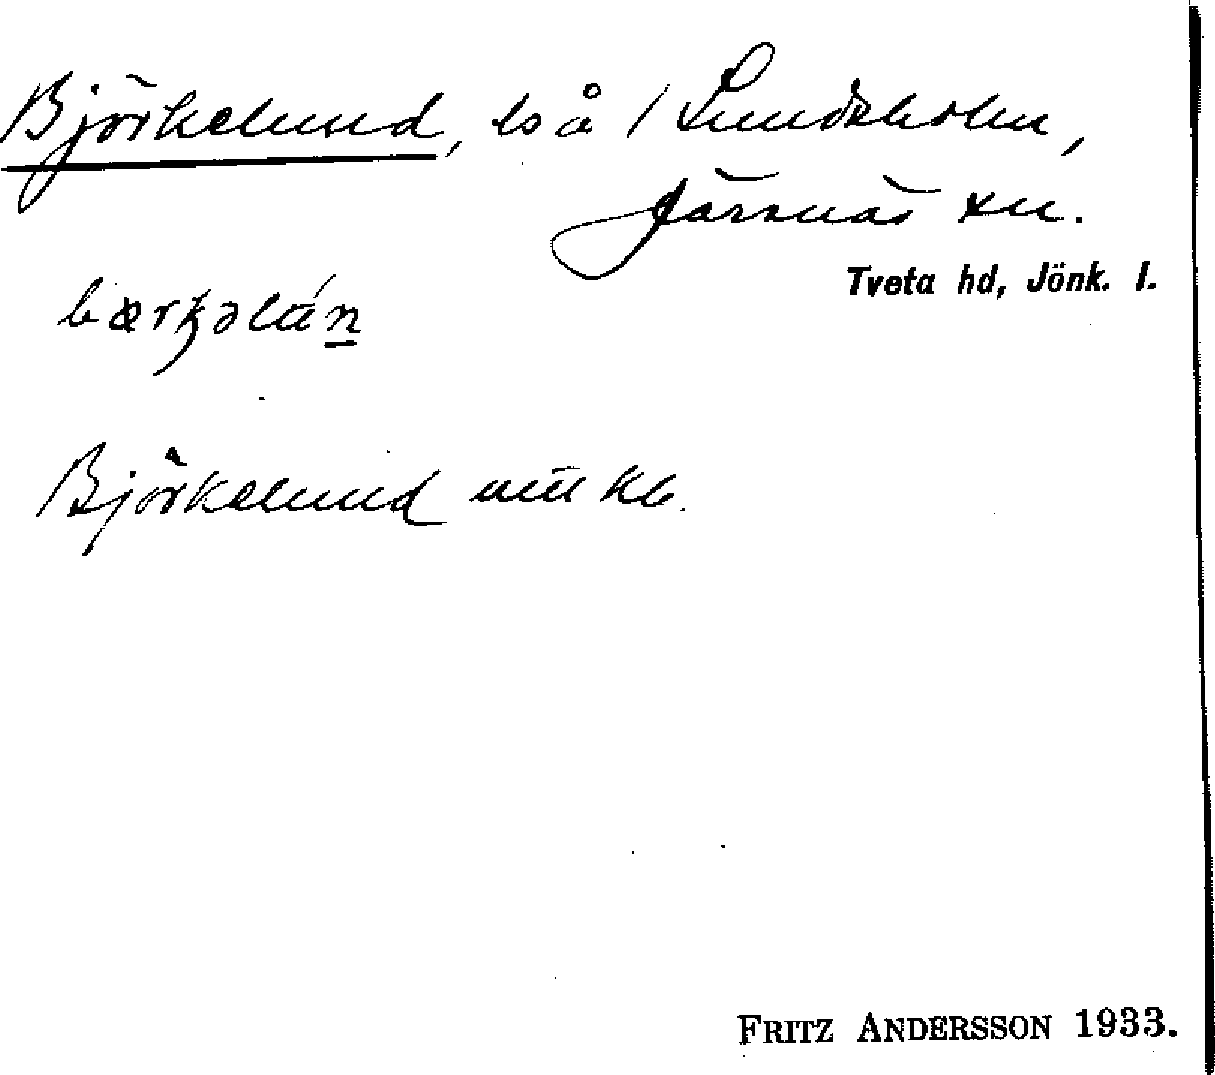 Björkelund, ls å / Lundsholm,
Järsnäs sn.
Tveta hd, Jönk. l.
bærꞣəlún
Björkelund mu Kb.
FRITZ ANDERSSON 1933.